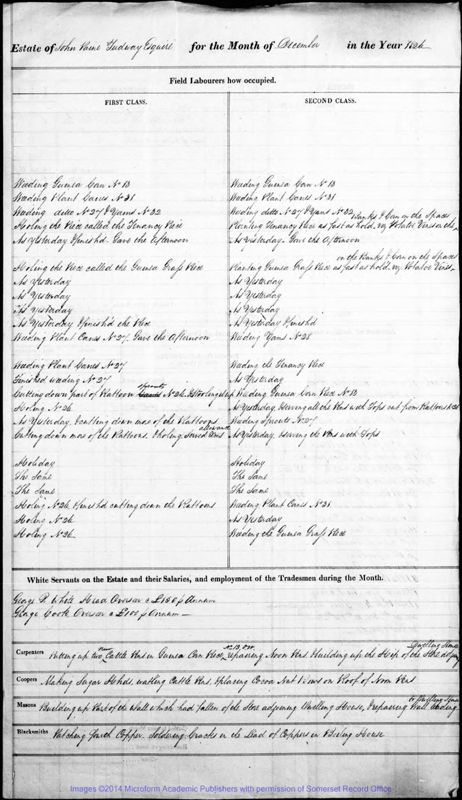 Estate of John Paine Tudway Esquire for the Month of December in the Year 1826
Field Labourers how occupied.
FIRST CLASS.
Weeding Guinea Corn No 13
Weeding Plant Canes No 31
Weeding ditto No 27 & Yams No 32
Holeing the Piece called the Tenancy Piece
As Yesterday & finish'd. Gave the Afternoon
Holeing the Piece called the Guinea Grass Piece
As Yesterday
As Yesterday
As Yesterday
As Yesterday & finish'd the Piece
Weeding Plant Canes No 27. Gave the Afternoon
Weeding Plant Canes No 27
Finished weeding No 27
Cutting down part of Rattoon sprouts No 26
Holeing No 26
As Yesterday, & cutting down more of the Rattoons
Cutting down more of the Rattoons, & holeing
Holiday
The Same
The Same
Holeing No 26, & finish'd cutting down the Rattoons
Holeing No 26
Holeing No 26
SECOND CLASS.
Weeding Guinea Corn No 13
Weeding Plant Canes No 31
Weeding ditto No 27 & Yams No 32
Planting Tenancy Piece as fast as holed, wy Potatoe Vines on the Banks & Corn on the Spaces
As Yesterday. Gave the Afternoon
Planting Guinea Grass Piece as fast as holed, wy Potatoe Vines on the Banks & Corn on the Spaces
As Yesterday
As Yesterday
As Yesterday
As Yesterday & finish'd
Weeding Yams No 28
Weeding the Tenancy Piece
As Yesterday
Weeding Guinea Corn Piece No 13
As Yesterday, & covering all the Pens with Tops cut from Rattoons
Weeding Sprouts No 27
As Yesterday, & covering the Pens with Tops
Holiday
The Same
The Same
Weeding Plant Canes No 31
As Yesterday
Weeding the Guinea Grass Piece
White Servants on the Estate and their Salaries, and employment of the Tradesmen during the Month.
George P. White Head Overseer @ £180 p Annum
George Cook Overseer @ £100 p Annum
Carpenters Putting up two new Cattle Pens in Guinea Corn Piece No 13, repairing Noon Pens, & building up the Step of the Store adjoing Dwelling House
Coopers Making Sugar Hhds, watling Cattle Pens, & placing Cocoa Nut Bows on Roof of Noon Pens
Masons Building up Part of the Wall which had fallen of the Store adjoining Dwelling House, & repairing Wall leading to Dwelling House
Blacksmiths Patching fourth Copper. Soldering Cracks in the Lead of Coppers in Boiling House
Images ©2014 Microform Academic Publishers with permission of Somerset Record Office